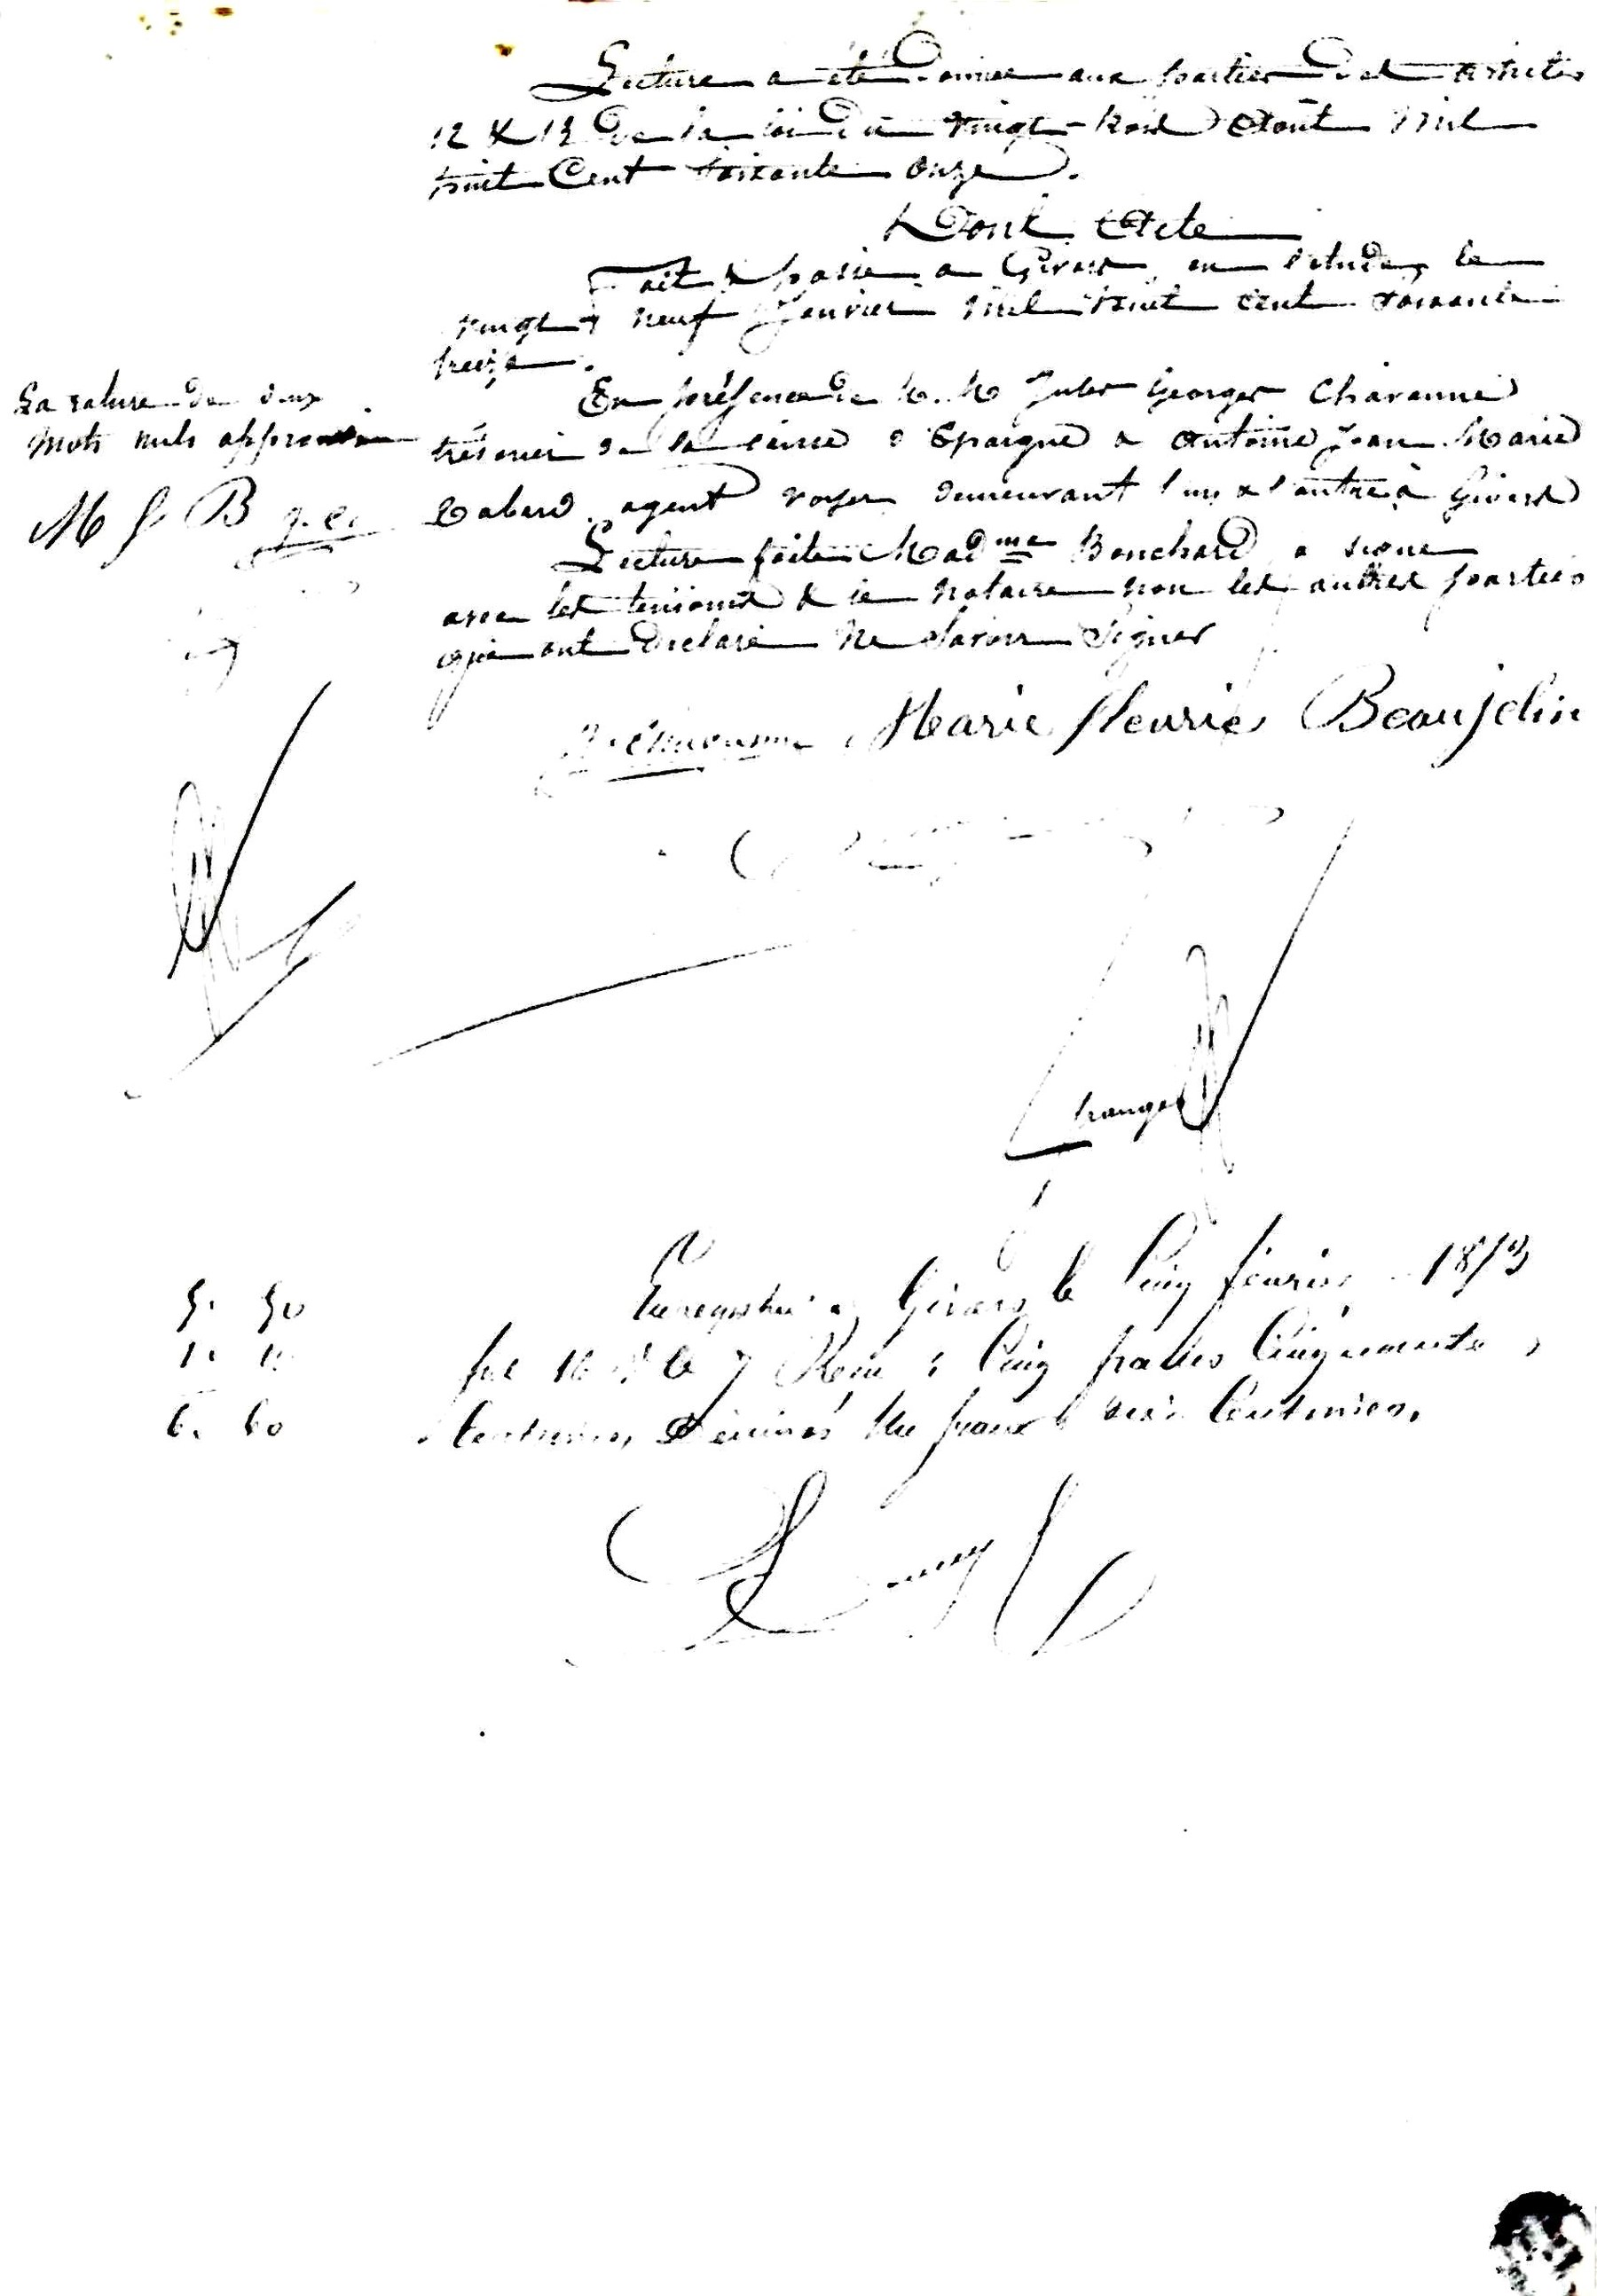 Lecture a été donnée aux parties des articles
12 & 13 de la loi du vingt-trois Août mil
huit Cent soixante onze.
Dont Acte
Fait & passé à Givors, en l'étude, le
vingt neuf Janvier mil huit cent soixante
treize.
En présence de M. M Jules Georges Charenne
trésorier de la caisse d'Epargne & Antoine Jean Marie
agent voyer demeurant l'un & l'autre à Givors
Lecture faite Mad^me Bonchard a signé
avec les témoins & le notaire non les autres parties
qui ont déclaré ne savoir signer
La rature de deux
mots nuls approuvée
M f B
Marie fleurie Beaujelin
5. 50
1. 10
6. 60
Enregistré à Givors le Cinq février 1873
fol 16 Reçu : Cinq francs Cinquante
Centimes, décimes Un franc dix Centimes.